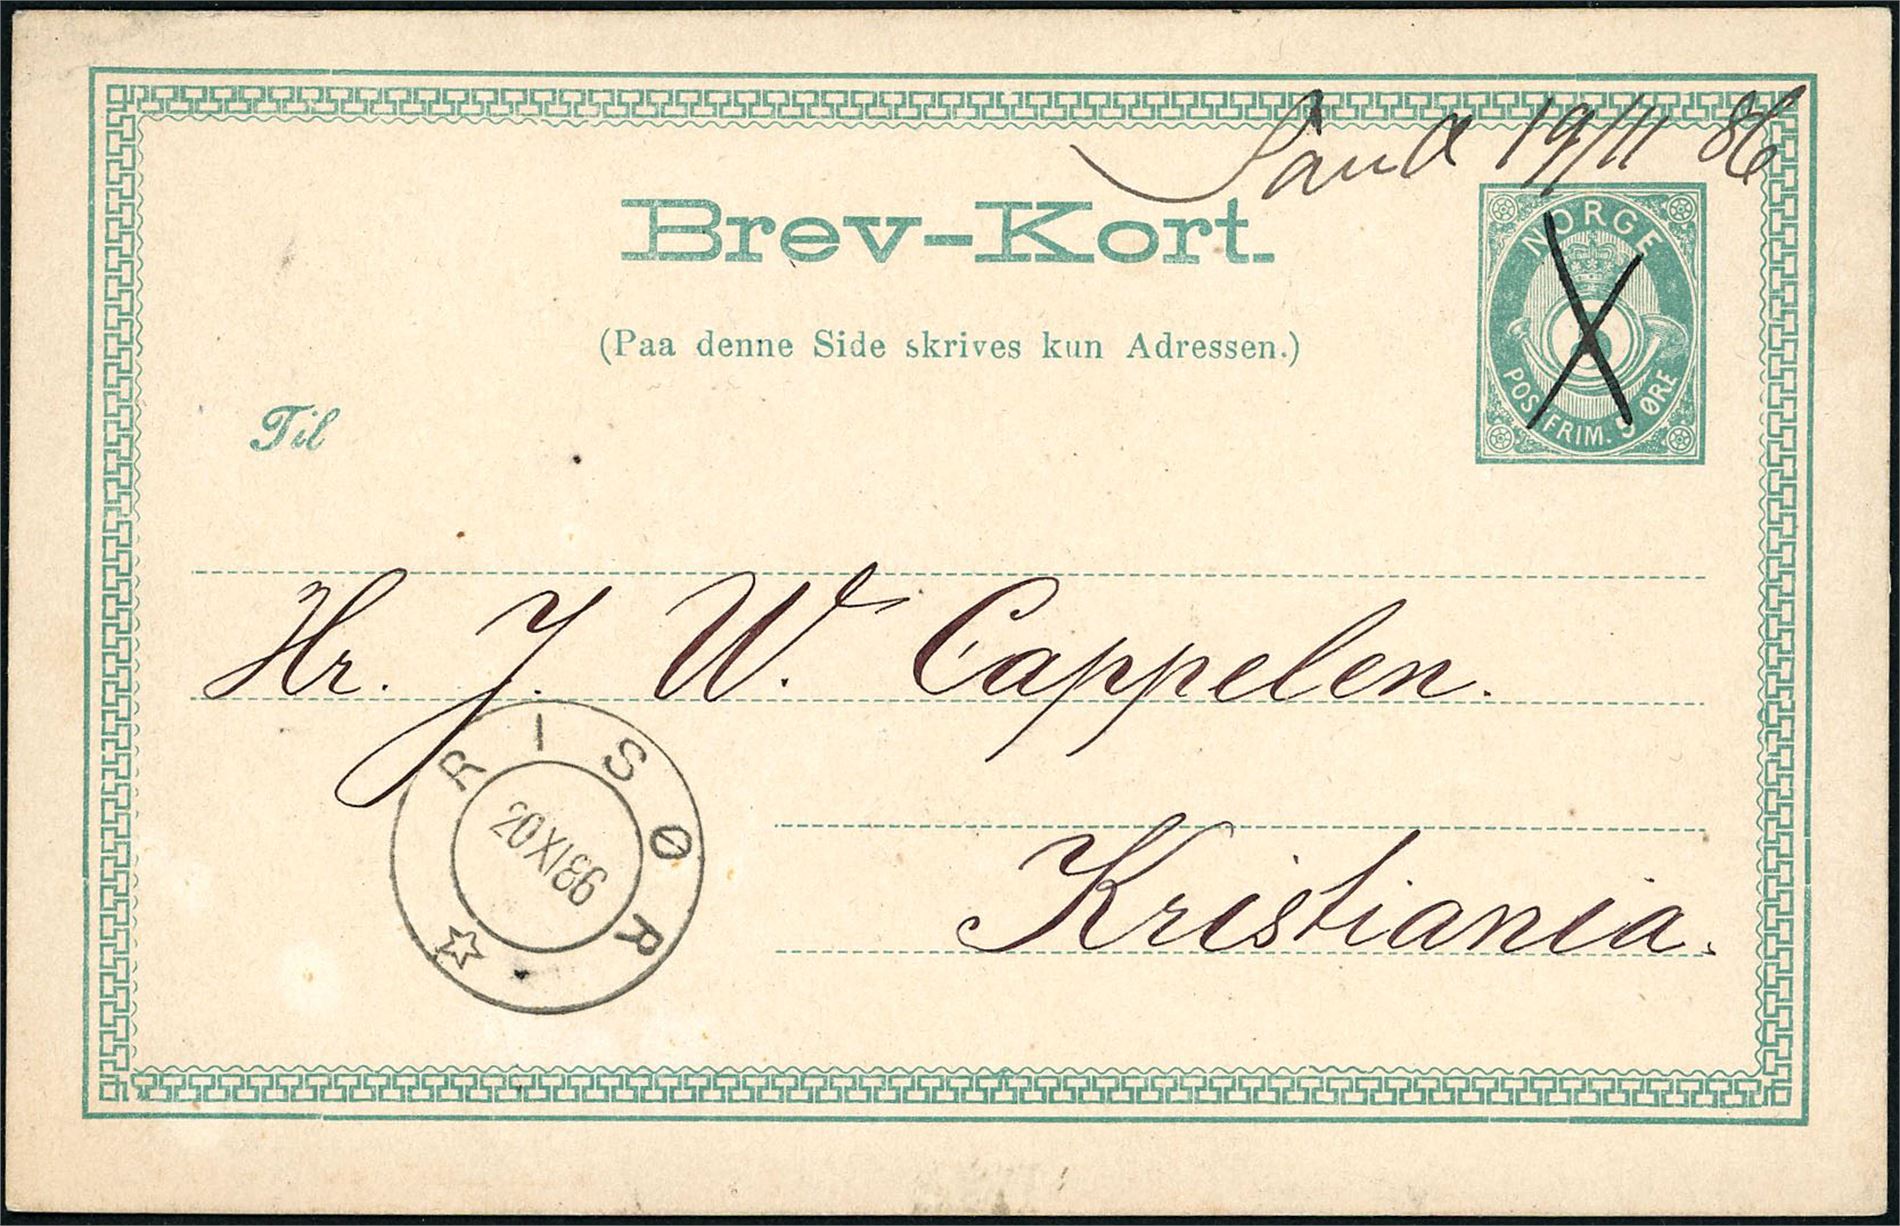 Sand 19/11 86
Brev-Kort.
NORGE
POSTFRIM. 5 ØRE
(Paa denne Side skrives kun Adressen.)
Til
Hr. J. W. Cappelen.
RISØR
20 XI 86
Kristiania.